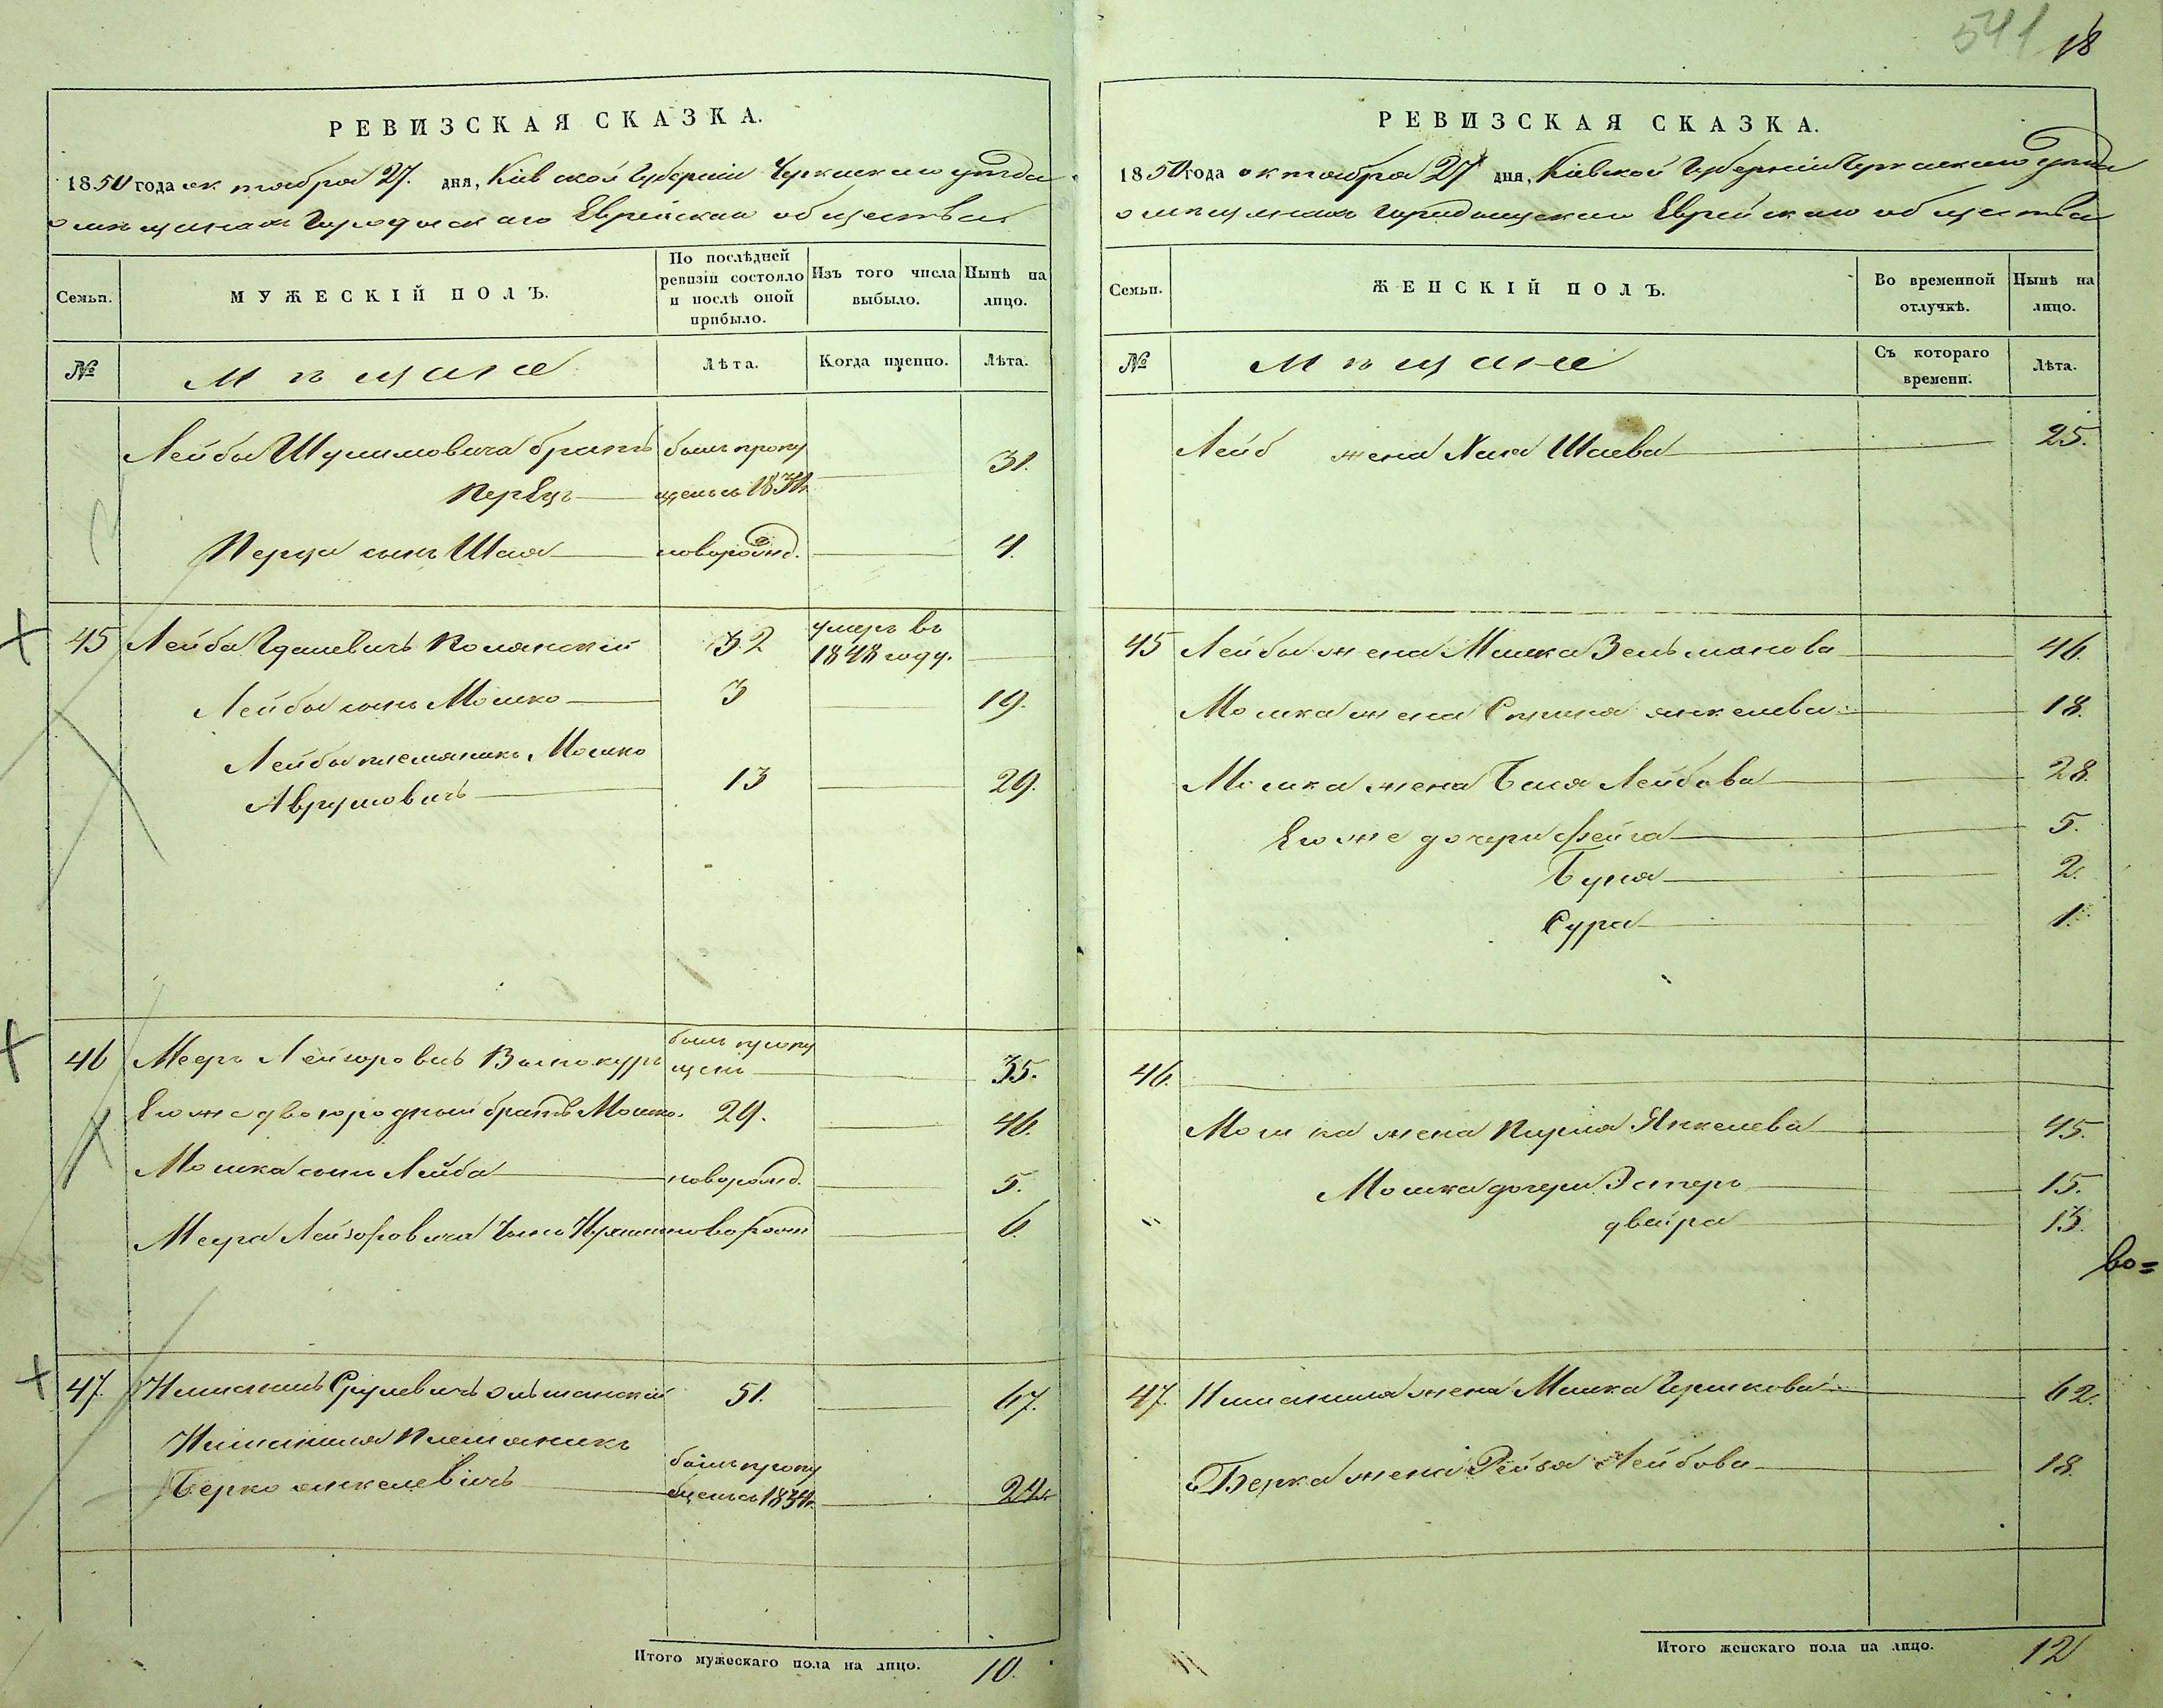 541 18
РЕВИЗСКАЯ СКАЗКА.
1850 года октября 27. дня, Кіевской Губерніи Черкаскаго уѣзда
о мѣщанахъ Городискаго Еврейскаго общества
Семьи.
МУЖЕСКІЙ ПОЛЪ.
По послѣдней ревизіи состояло и послѣ оной прибыло.
Изъ того числа выбыло.
Нынѣ на лицо.
№
Мѣщане
Лѣта.
Когда именно.
Лѣта.
Лейбы Шулимовича братъ былъ пропу
Перецъ щенъ съ 1834 31.
Перца сынъ Шая новорожд. 4.
45 Лейба Гдалевичъ Полянскій 32 умеръ въ 1848 году.
Лейбы сынъ Мошко 3 19.
Лейбы племяникъ Мошко
Аврумовичъ 13 29.
46 Мееръ Лейзоровичъ Винокуръ былъ пропущенъ 35.
Его же двоюродный братъ Мошко. 29. 46.
Мошка сынъ Лейба новорожд. 5.
Меера Лейзоровича сынъ новорожд 6.
47. Срулевичъ Ольшанскій 51. 67.
Племяникъ былъ пропу
Берко Янкелевичъ щенъ съ 1834. 24
Итого мужескаго пола на лицо. 10.
РЕВИЗСКАЯ СКАЗКА.
1850 года октября 27 дня, Кіевской Губерніи Черкаскаго уѣзда
о мѣщанахъ Городищскаго Еврейскаго общества
Семьи.
ЖЕНСКІЙ ПОЛЪ.
Во временной отлучкѣ.
Нынѣ на лицо.
№
Мѣщане
Съ котораго времени.
Лѣта.
Лейб жена Хая Шаева 25.
45 Лейбы жена Малка Зельманова 46.
Мошка жена Янкелева 18.
Мошка жена Бася Лейбова 28.
Его же дочери Фейга 5.
Буня 2.
Сура 1.
46.
Мошка жена Пирля Янкелева 45.
Мошка дочери Эстеръ 15.
" Двейра 13.
во=
47. жена Малка Гершкова 62.
Берка жена Рейза Лейбова 18.
Итого женскаго пола на лицо. 12